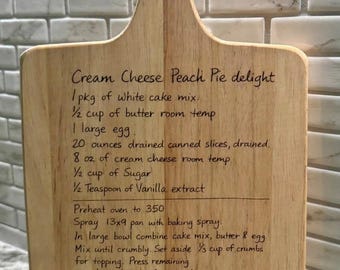 Cream Cheese Peach Pie delight
1 pkg of white cake mix.
½ cup of butter room temp
1 large egg
20 ounces drained canned slices, drained.
8 oz of cream cheese room temp
½ cup of Sugar
½ Teaspoon of Vanilla extract
Preheat oven to 350
Spray 13x9 pan with baking spray.
In large bowl combine cake mix, butter & egg
Mix until crumbly. Set aside ⅓ cup of crumbs
for topping. Press remaining